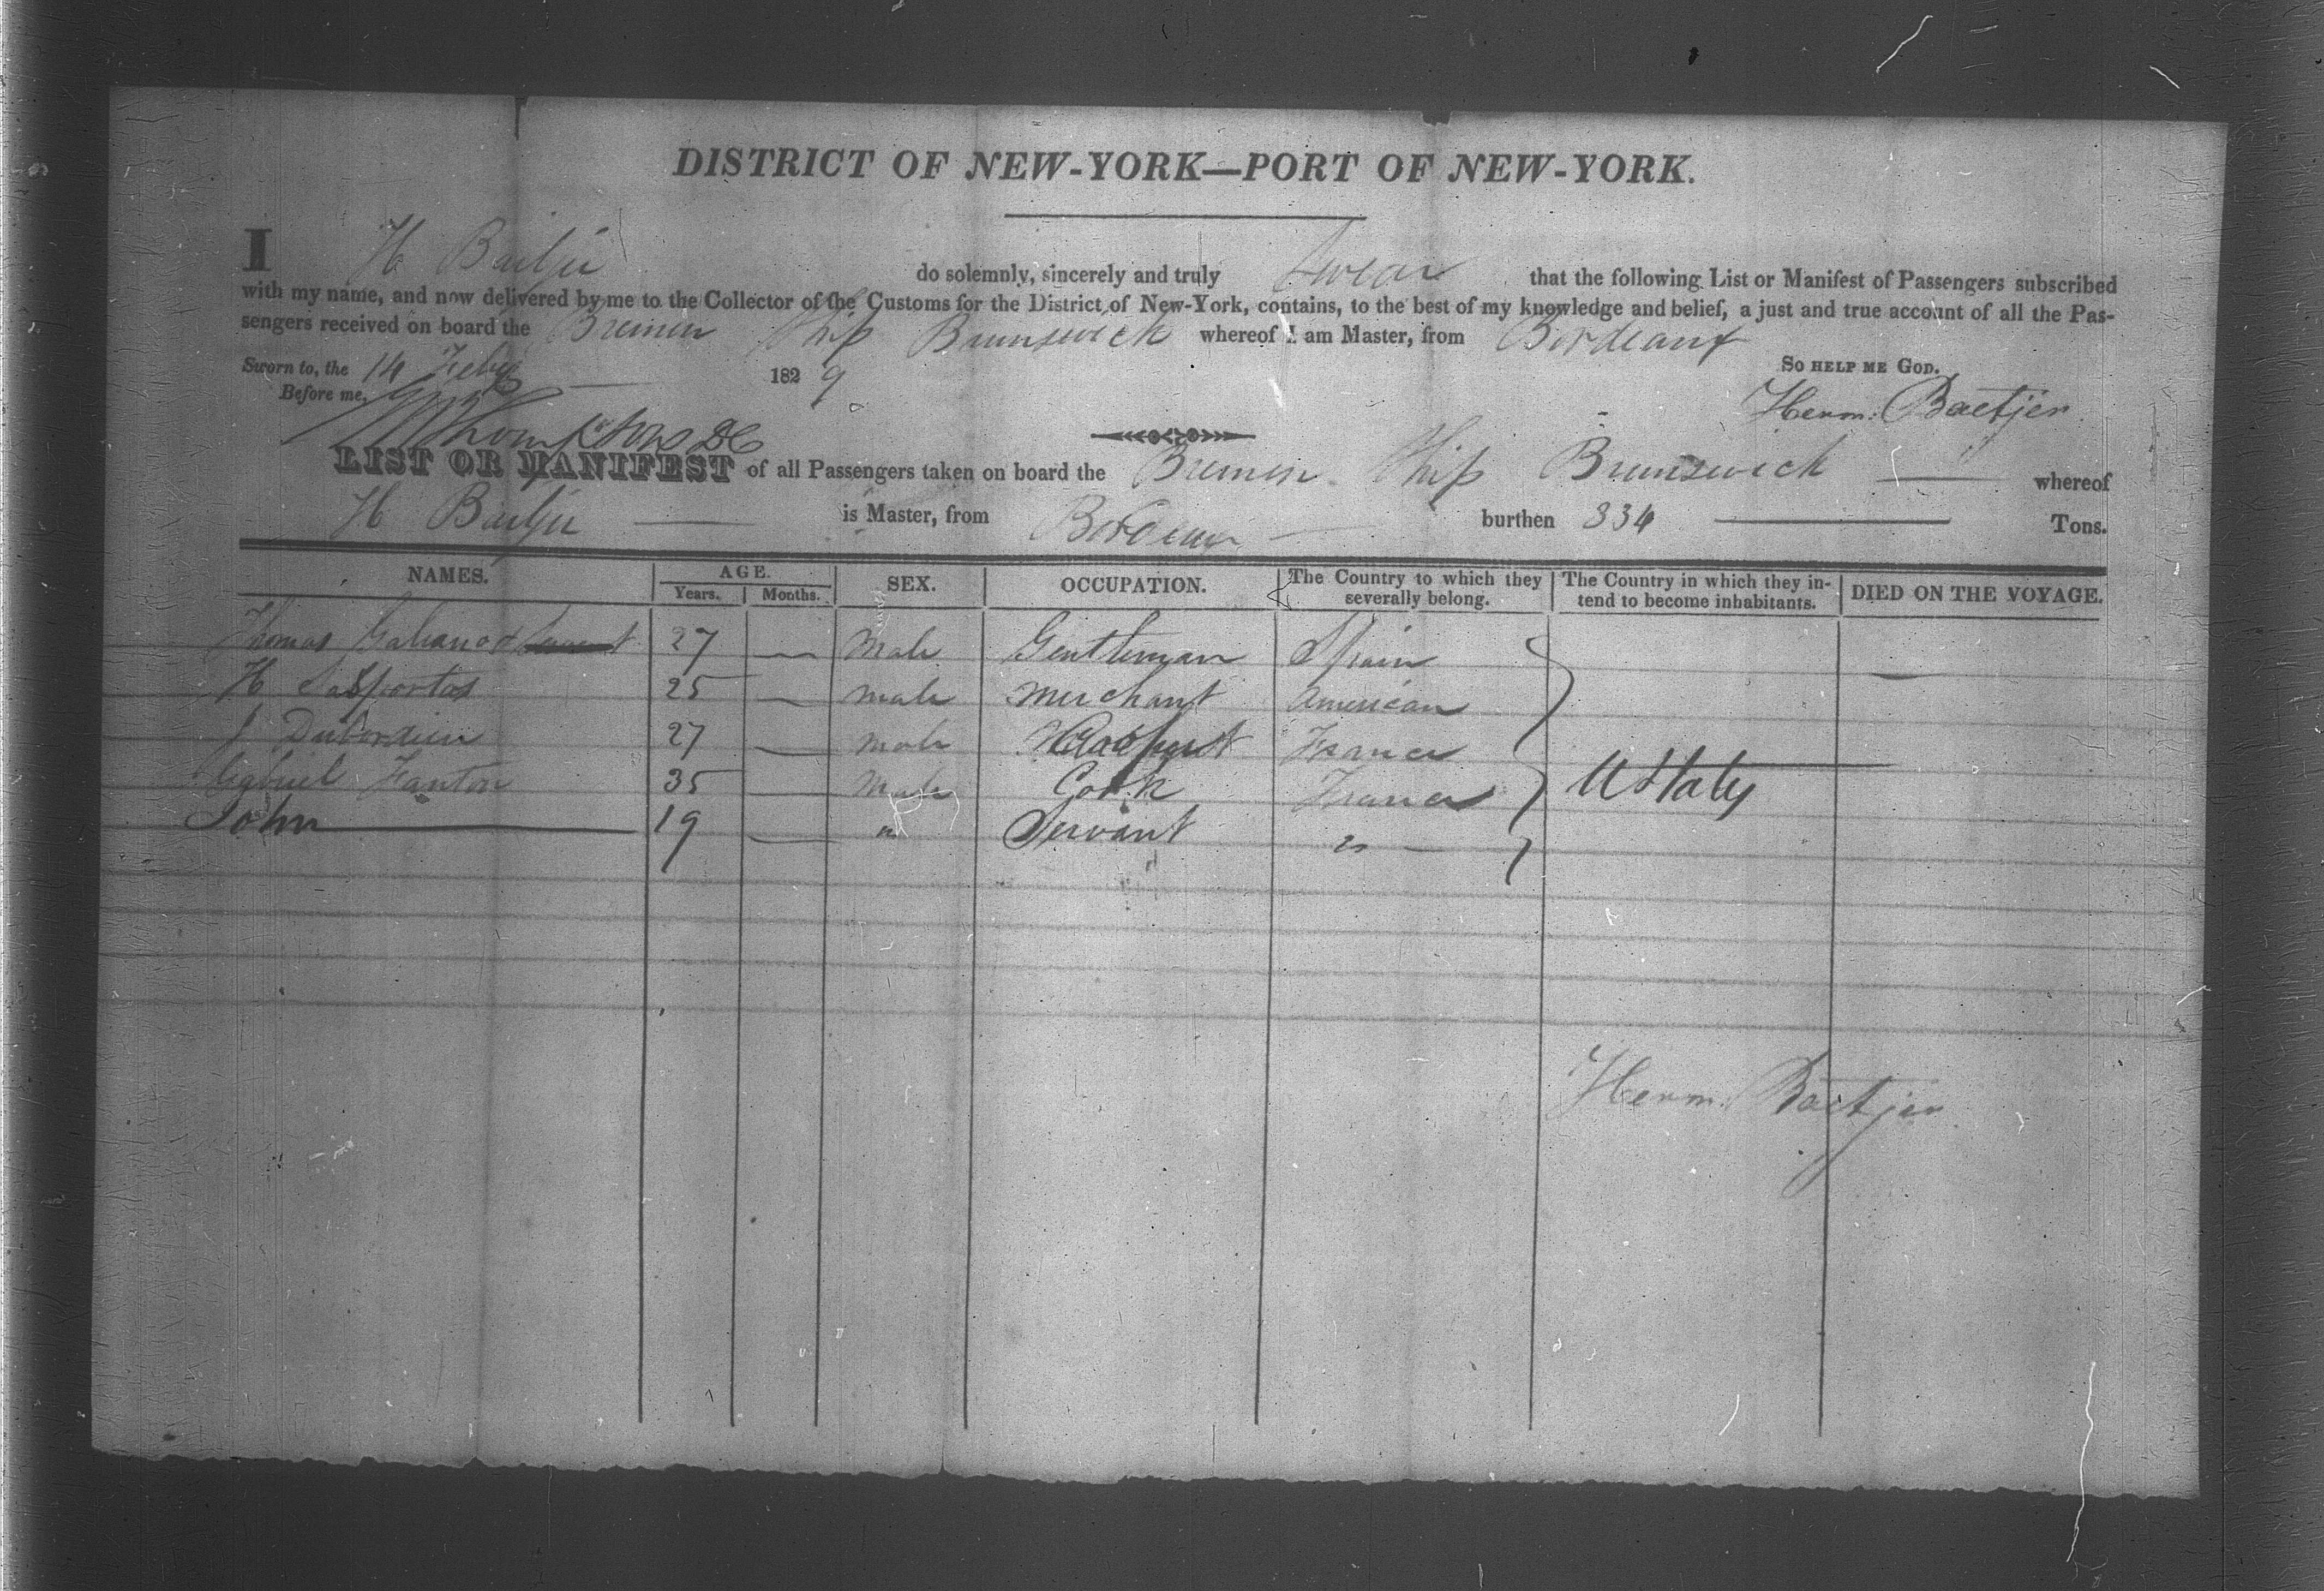 DISTRICT OF NEW-YORK—PORT OF NEW-YORK.
I H Baetjer do solemnly, sincerely and truly Swear that the following List or Manifest of Passengers subscribed
with my name, and now delivered by me to the Collector of the Customs for the District of New-York, contains, to the best of my knowledge and belief, a just and true account of all the Pas-
sengers received on board the Bremen Ship Brunswick whereof I am Master, from Bordeaux
Sworn to, the 14 Feby 1829 So HELP ME GOD.
Before me, Herm: Baetjer
Thompson DC
LIST OR MANIFEST of all Passengers taken on board the Bremen Ship Brunswick — whereof
H Baetjer — is Master, from burthen 334 — Tons.
NAMES. AGE. SEX. OCCUPATION. The Country to which they severally belong. The Country in which they in-tend to become inhabitants. DIED ON THE VOYAGE.
Years. Months.
Thomas Galiano & 27 — Male Gentleman Spain —
H Sasportas 25 — male Merchant American
J Dubordieu 27 — male France
Gabriel Fanton 35 — Male Cook France U States
John — 19 — " Servant " —
Herm. Baetjer